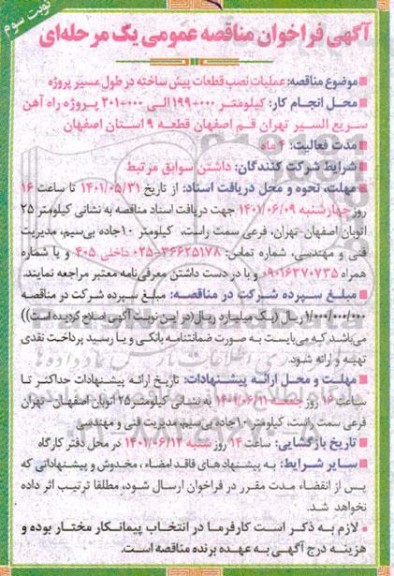 نوبت سوم
آگهی فراخوان مناقصه عمومی یک مرحله‌ای
موضوع مناقصه: عملیات نصب قطعات پیش ساخته در طول مسیر پروژه
محل انجام کار: کیلومتر ۱۹۹+۰۰۰ الی ۲۰۱+۰۰۰ پروژه راه آهن
سریع السیر تهران قم اصفهان قطعه ۹ استان اصفهان
مدت فعالیت: ۴ ماه
شرایط شرکت کنندگان: داشتن سوابق مرتبط
مهلت، نحوه و محل دریافت اسناد: از تاریخ ۱۴۰۱/۰۵/۳۱ تا ساعت ۱۶
روز چهارشنبه ۱۴۰۱/۰۶/۰۹ جهت دریافت اسناد مناقصه به نشانی کیلومتر ۲۵
اتوبان اصفهان-تهران، فرعی سمت راست، کیلومتر ۱۰ جاده بی‌سیم، مدیریت
فنی و مهندسی، شماره تماس: ۳۶۶۲۵۱۷۸-۰۲۵ داخلی ۴۰۵ و یا شماره
همراه ۰۹۰۱۶۳۷۰۷۳۵ و با در دست داشتن معرفی‌نامه معتبر مراجعه نمایند.
مبلغ سپرده شرکت در مناقصه: مبلغ سپرده شرکت در مناقصه
۱/۰۰۰/۰۰۰/۰۰۰ ریال (یک میلیارد ریال (در این نوبت آگهی اصلاح گردیده است))
می‌باشد که می‌بایست به صورت ضمانتنامه بانکی و یا رسید پرداخت نقدی
تهیه و ارائه شود.
مهلت و محل ارائه پیشنهادات: تاریخ ارائه پیشنهادات حداکثر تا
ساعت ۱۶ روز جمعه ۱۴۰۱/۰۶/۱۱ به نشانی کیلومتر ۲۵ اتوبان اصفهان- تهران
فرعی سمت راست، کیلومتر ۱۰ جاده بی‌سیم، مدیریت فنی و مهندسی
تاریخ بازگشایی: ساعت ۱۴ روز شنبه ۱۴۰۱/۰۶/۱۲ در محل دفتر کارگاه
سایر شرایط: به پیشنهاد های فاقد امضاء، مخدوش و پیشنهاداتی که
پس از انقضاء مدت مقرر در فراخوان ارسال شود، مطلقا ترتیب اثر داده
نخواهد شد.
لازم به ذکر است کارفرما در انتخاب پیمانکار مختار بوده و
هزینه درج آگهی به عهده برنده مناقصه است.